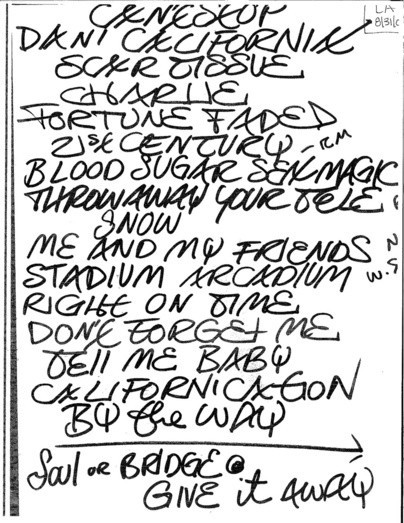 CAN'T STOP
LA
DANI CALIFORNIA
8/31/
SCAR TISSUE
CHARLIE
FORTUNE FADED
21st CENTURY - RM
BLOOD SUGAR SEX MAGIC
THROW AWAY YOUR TELE
SNOW
ME AND MY FRIENDS N
STADIUM ARCADIUM W.S
RIGHT ON TIME
DON'T FORGET ME
TELL ME BABY
CALIFORNICATION
BY the WAY
Soul or BRIDGE
GIVE it AWAY